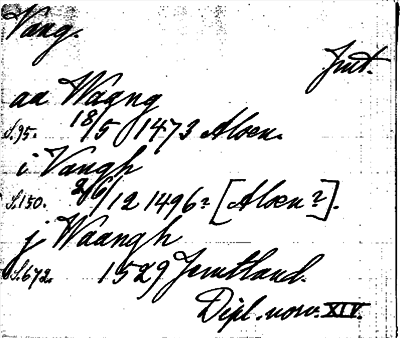 Vang.
Jmt.
aa Wagng
S.95. 18/5 1473 Aloen.
i Vangh
S.150. 26/12 1496? [Aloen?].
j Waangh
S.672. 1529 Jemtland.
Dipl. norv. XIV.